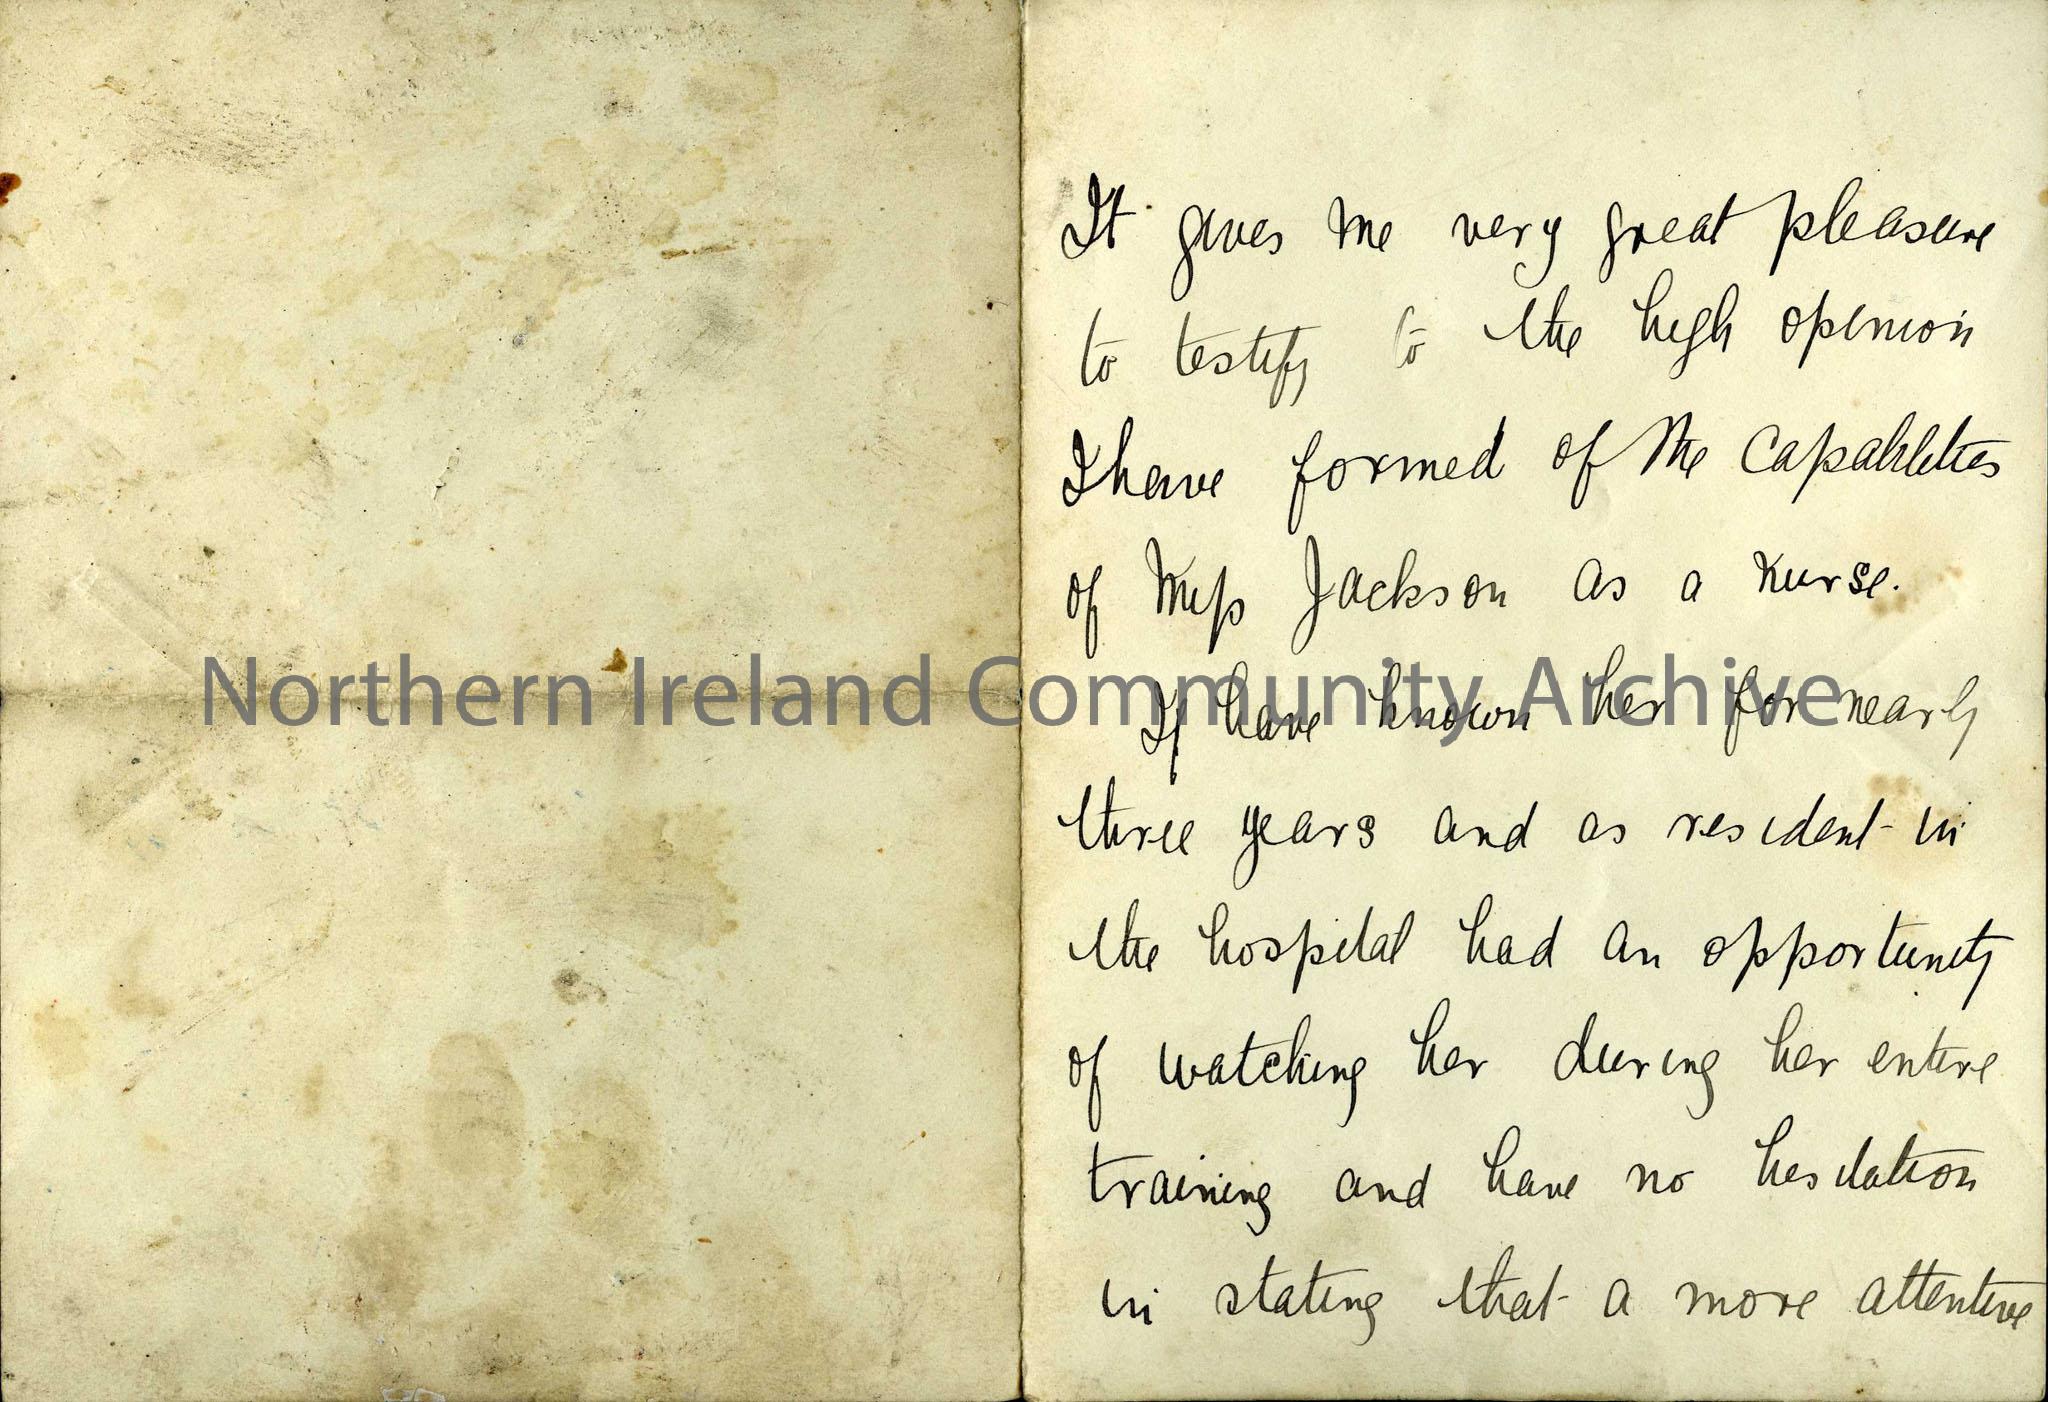 It gives me very great pleasure
to testify to the high opinion
I have formed of the capabilities
of Miss Jackson as a nurse.
Northern Ireland Community Archive
I have known her for nearly
three years and as resident in
the hospital had an opportunity
of watching her during her entire
training and have no hesitation
in stating that a more attentive